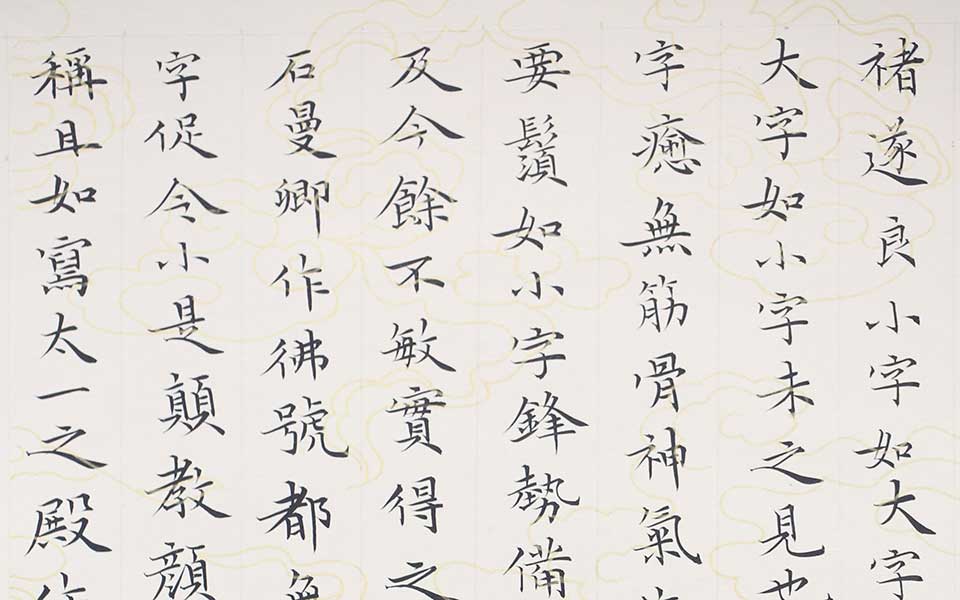 褚遂良小字如大字
大字如小字未之見也
字癒無筋骨神氣
要鬚如小字鋒勢備
及今餘不敏實得之
石曼卿作佛號都無
字促令小是顛教顏
稱且如寫太一之殿作